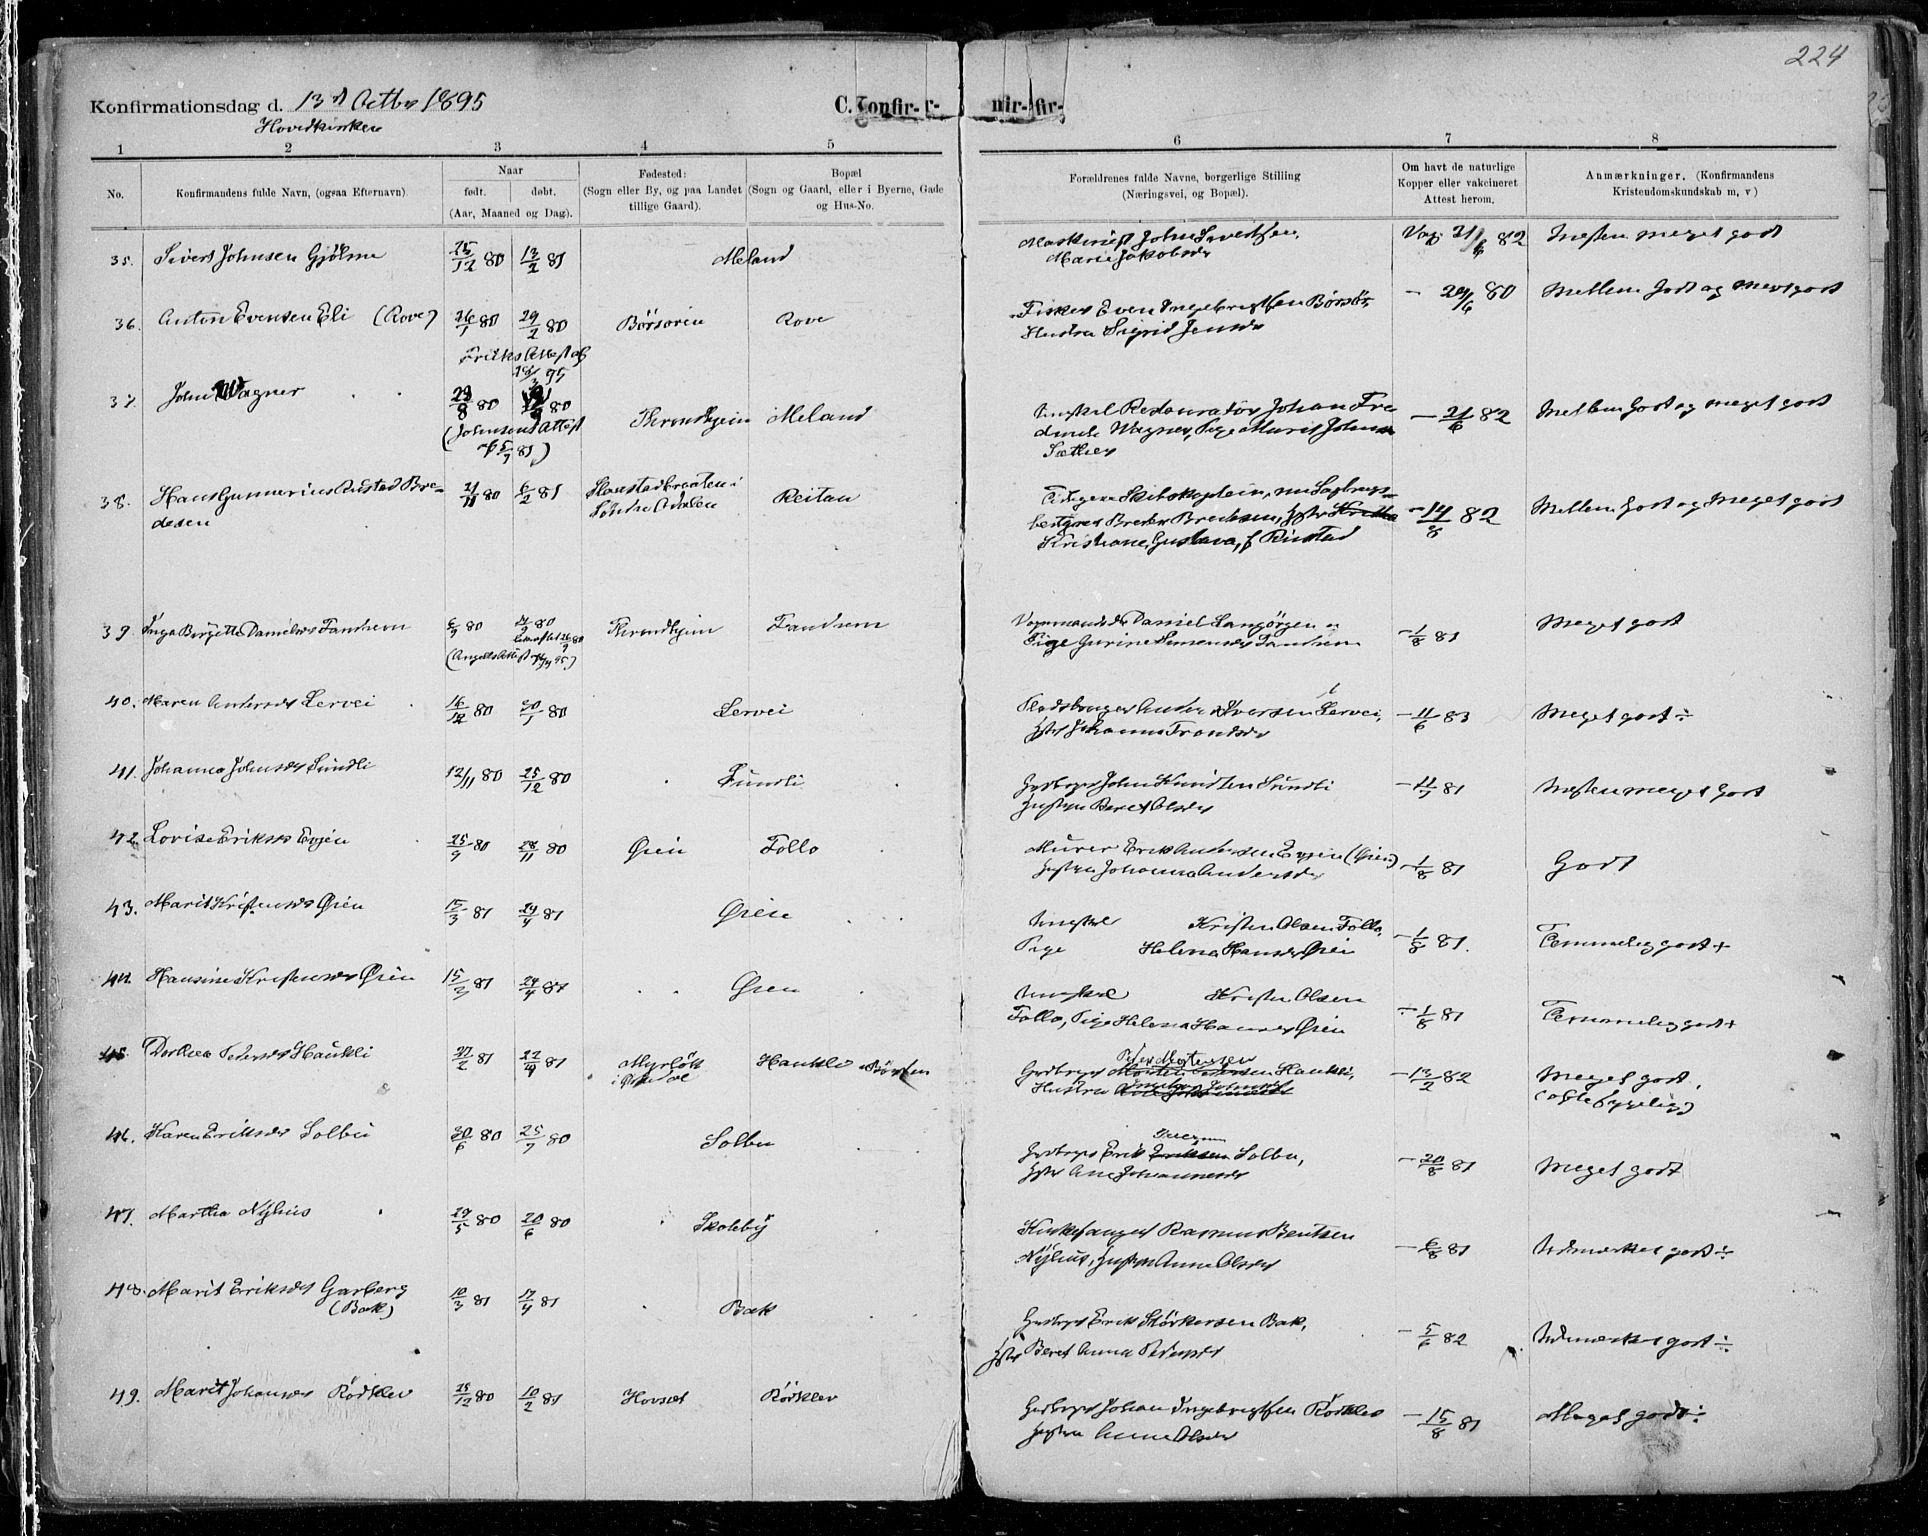 224
Konfirmationsdag d. 13d Octbr 1895
Hovedkirken
C. Konfir- r- mir- fir-
1 2 3 4 5 6 7 8
No.
Konfirmandens fulde Navn, (ogsaa Efternavn)
Naar
født. døbt.
(Aar, Maaned og Dag).
Fødested:
(Sogn eller By, og paa Landet
tillige Gaard).
Bopæl
(Sogn og Gaard, eller i Byerne, Gade
og Hus-No.
Forældrenes fulde Navne, borgerlige Stilling
(Næringsvei, og Bopæl).
Om havt de naturlige
Kopper eller vakcineret
Attest herom.
Anmærkninger. (Konfirmandens
Kristendomskundskab m, v)
35. Sivert Johnsen Gjølme 25/12 80 13/2 81 Meland
Maskinist John Sivertsen,
Marie Jakobsdr
Vac. 21/6 82 Næsten meget godt
36. Anton Evensen Eli (Rove) 26/1 80 29/2 80 Børsøren Rove
Fisker Even Ingebrigtsen Børsør,
Hustru Sigrid Jensdr
- 29/6 80 Mellem godt og meget godt
37. John Wagner 29/8 80 80 Throndhjem Meland
(Johnsons Attest
af 5/7 81)
Ungkal Restauratør Johan Fre-
derik Wagner, Pige Marit Johnsdr
Sæther
- 21/6 82 Mellem godt og meget godt
38. Hans Gunnerius Rustad Bre-
desen
21/11 80 6/2 81 Reitan
Søndre Odalen
Tidligere Skibskaptein, nu Sagbrugs-
bestyrer Brede Bredesen, Hstr
Kristiane Gustava, f. Rustad
- 14/8 82 Mellem godt og meget godt
39. Inga Bergitte Danielsdr Tandrem 80 80 Throndhjem Tandrem
Vognmand Daniel Langørgen og
Pige Gurine Simonsdr Tandrem
- 1/8 81 Meget godt
40. Maren Andersdr Lervei 16/12 80 30/1 80 Lervei
Pladsbruger Anders Iversen Lervei,
Hstr Johanna Trondsdr
- 11/6 83 Meget godt ÷
41. Johanna Johnsdr Sundli 12/11 80 25/12 80 Sundli
Gdbruger John Knudsen Sundli
Hustru Beret Olsdr
- 11/7 81 Næsten meget godt
42. Lovise Eriksdr Evjen 25/9 80 28/11 80 Øien Follo
Murer Erik Andersen Evjen (Øien)
Hustru Johanna Andersdr
- 1/8 81 Godt
43. Marit Kristensdr Øien 15/3 81 24/4 81 Øien
Ungkal Kristen Olsen Follo,
Pige Helena Hansdr Øien
- 1/8 81. Temmelig godt +
44. Hansine Kristensdr Øien 15/3 81 24/4 81 Øien
Ungkal Kristen Olsen
Follo, Pige Helena Hansdr Øien
- 1/8 81 Temmelig godt +
45. Dorthea Pedersdr Haukli 27/2 81 22/4 81 Haukli Børsten
Peder Mortensen
Gdbruger Haukli,
Hustru
- 13/2 82 Meget godt,
46. Karen Eriksdr Solbu 30/6 80 25/7 80 Solbu
Gdbruger Erik Eriksen Solbu,
Hstr Ane Johannesdr
- 20/8 81 Meget godt
47. Martha Nyhus 29/5 80 20/6 80 Skoleby
Kirkesanger Rasmus Bentsen
Nyhus, Hustru Anne Olsdr
- 6/8 81 Udmærket godt ÷
48. Marit Eriksdr Garberg
(Bak)
10/3 81 17/4 81 Bak
Gdbruger Erik Størkersen Bak,
Hstr Beret Anna Pedersdr
- 5/6 82 Udmærket godt ÷
49. Marit Johansdr Rødklev 25/12 80 10/2 81 Hovset Rødklev
Gdbruger Johan Ingebrigtsen Rødklev
Hustru Anne Olsdr
- 15/8 81 Meget godt ÷